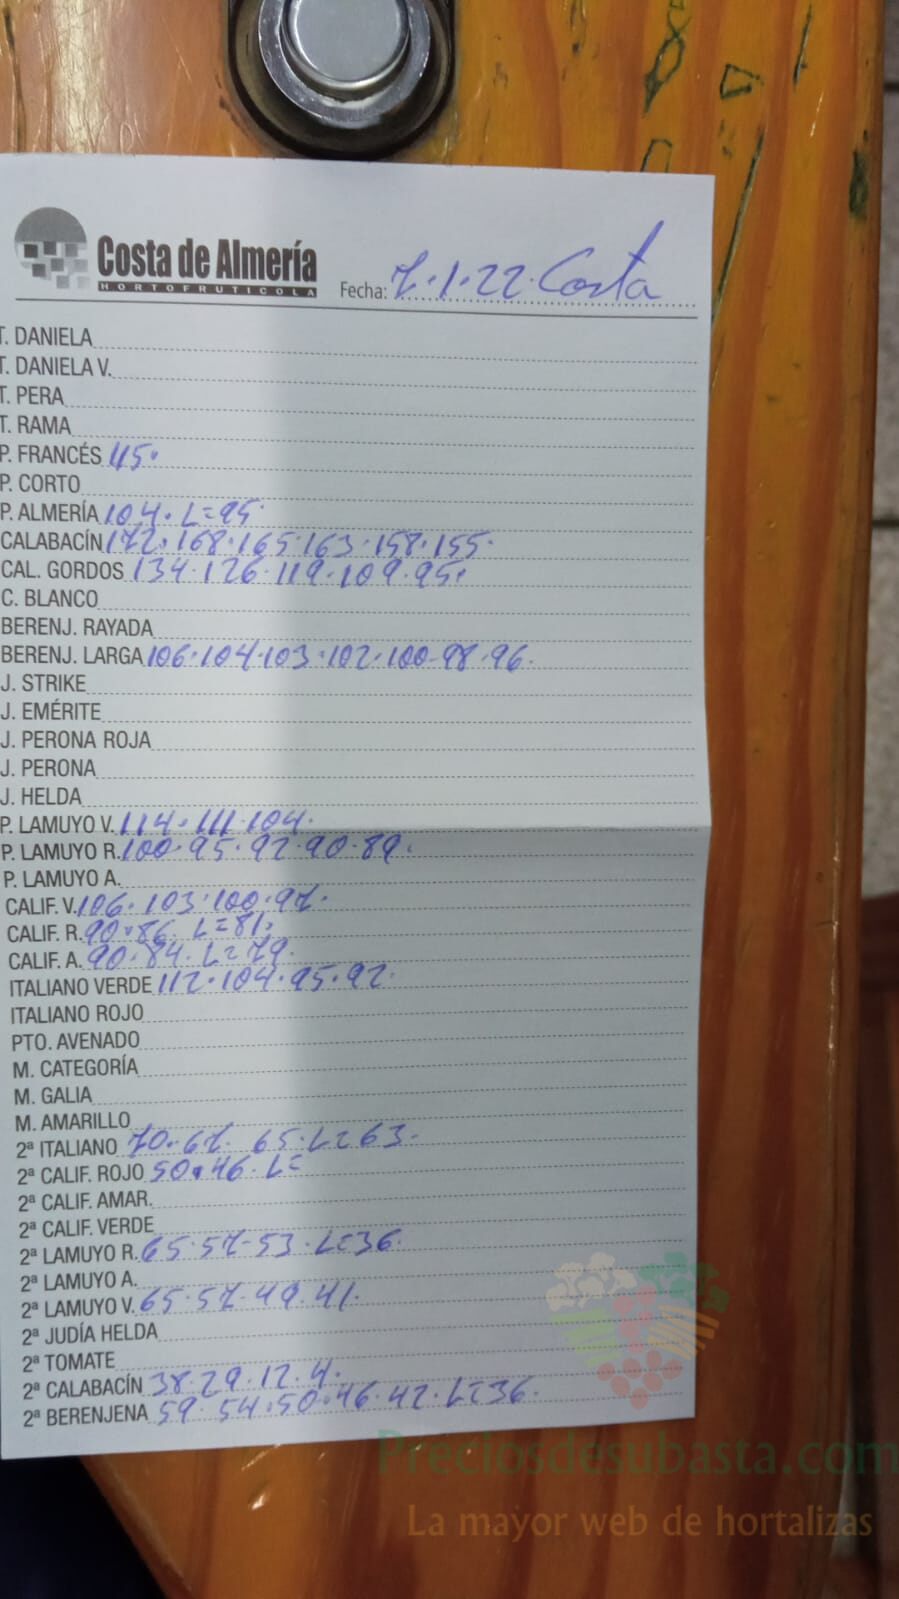 Costa de Almería
HORTOFRUTICOLA
Fecha: 7.1.22. Costa
T. DANIELA
T. DANIELA V.
T. PERA
T. RAMA
P. FRANCÉS 45.
P. CORTO
P. ALMERÍA 104. L=95
CALABACÍN 172.168.165.163.158.155.
CAL. GORDOS 134.126.119.109.95.
C. BLANCO
BERENJ. RAYADA
BERENJ. LARGA 106.104.103.102.100-98.96.
J. STRIKE
J. EMÉRITE
J. PERONA ROJA
J. PERONA
J. HELDA
P. LAMUYO V. 114.111.104.
P. LAMUYO R. 100.95.92.90.89.
P. LAMUYO A.
CALIF. V. 106.103.100.97.
CALIF. R. 90.86. L=81.
CALIF. A. 90.84. L=79.
ITALIANO VERDE 112.104.95.92.
ITALIANO ROJO
PTO. AVENADO
M. CATEGORÍA
M. GALIA
M. AMARILLO
2ª ITALIANO 70.67. 65.L=63.
2ª CALIF. ROJO 50.46.L=
2ª CALIF. AMAR.
2ª CALIF. VERDE
2ª LAMUYO R. 65.57-53.L=36.
2ª LAMUYO A.
2ª LAMUYO V. 65.57.49.41.
2ª JUDÍA HELDA
2ª TOMATE
2ª CALABACÍN 38.29.12.4.
2ª BERENJENA 59.54.50.46.42.L=36.
Preciosdesubasta.com
La mayor web de hortalizas